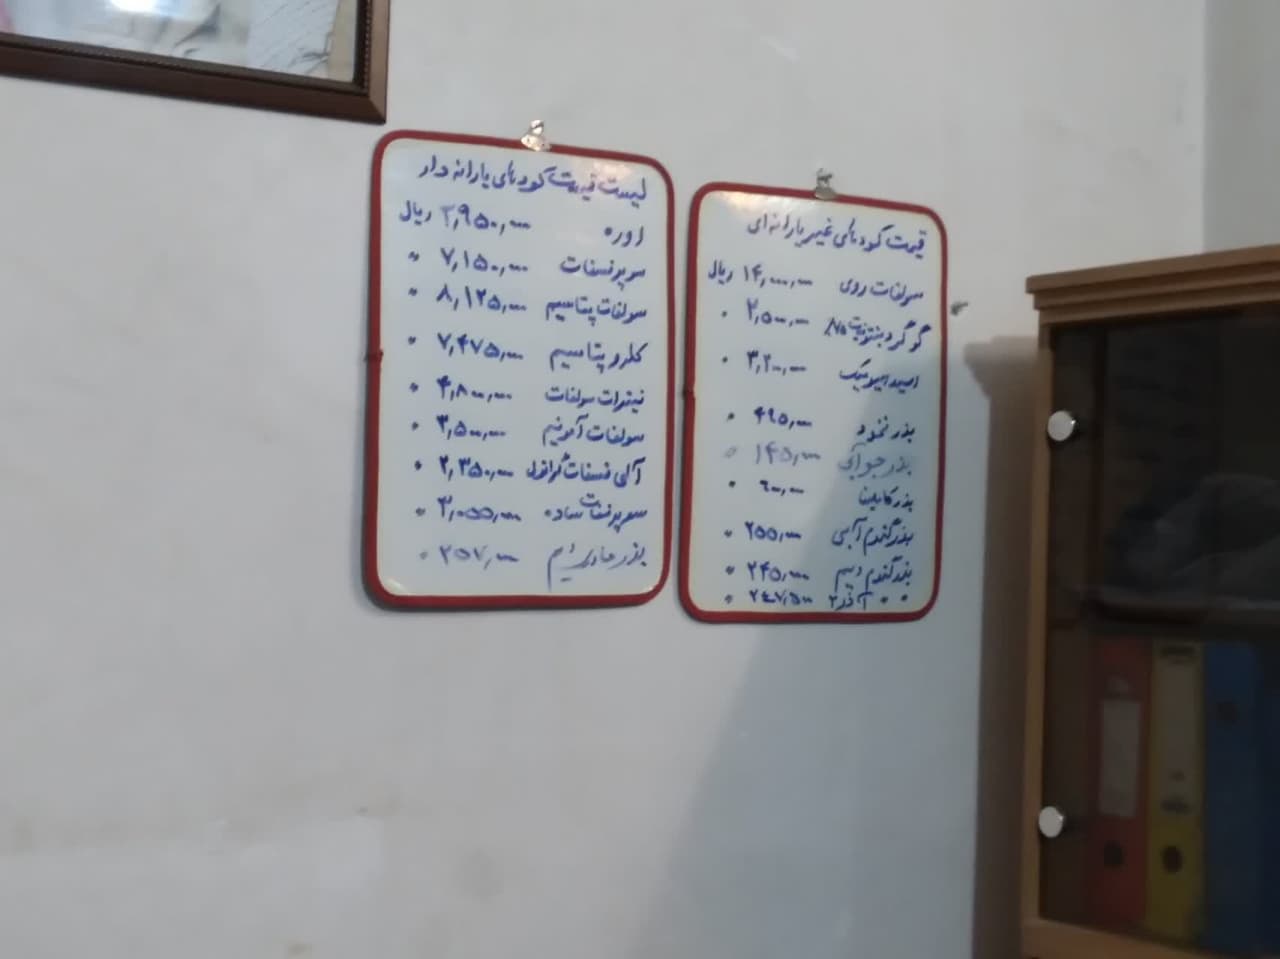 قیمت کودهای غیر یارانه ای
سولفات روی ۱۴,۰۰۰,۰۰۰ ریال
گوگرد بنتونیت ۲,۵۰۰,۰۰۰ "
اسید هیومیک ۳,۲۰۰,۰۰۰ "
بذر نخود ۴۹۵,۰۰۰ "
بذر جو آبی ۱۴۵,۰۰۰ "
بذر کاملینا ۶۰۰,۰۰۰ "
بذر گندم آبی ۲۵۵,۰۰۰ "
بذر گندم دیم ۲۴۵,۰۰۰ "
" " آذر۲ ۲۴۷,۵۰۰ "
لیست قیمت کودهای یارانه دار
اوره ۲,۹۵۰,۰۰۰ ریال
سوپر فسفات ۷,۱۵۰,۰۰۰ "
سولفات پتاسیم ۸,۱۲۵,۰۰۰ "
کلرو پتاسیم ۷,۴۷۵,۰۰۰ "
نیترات سولفات ۴,۸۰۰,۰۰۰ "
سولفات آمونیم ۳,۵۰۰,۰۰۰ "
آلی فسفات گرانوله ۲,۳۵۰,۰۰۰ "
سوپر فسفات ساده ۳,۰۵۵,۰۰۰ "
بذر ۲۵۷,۰۰۰ "